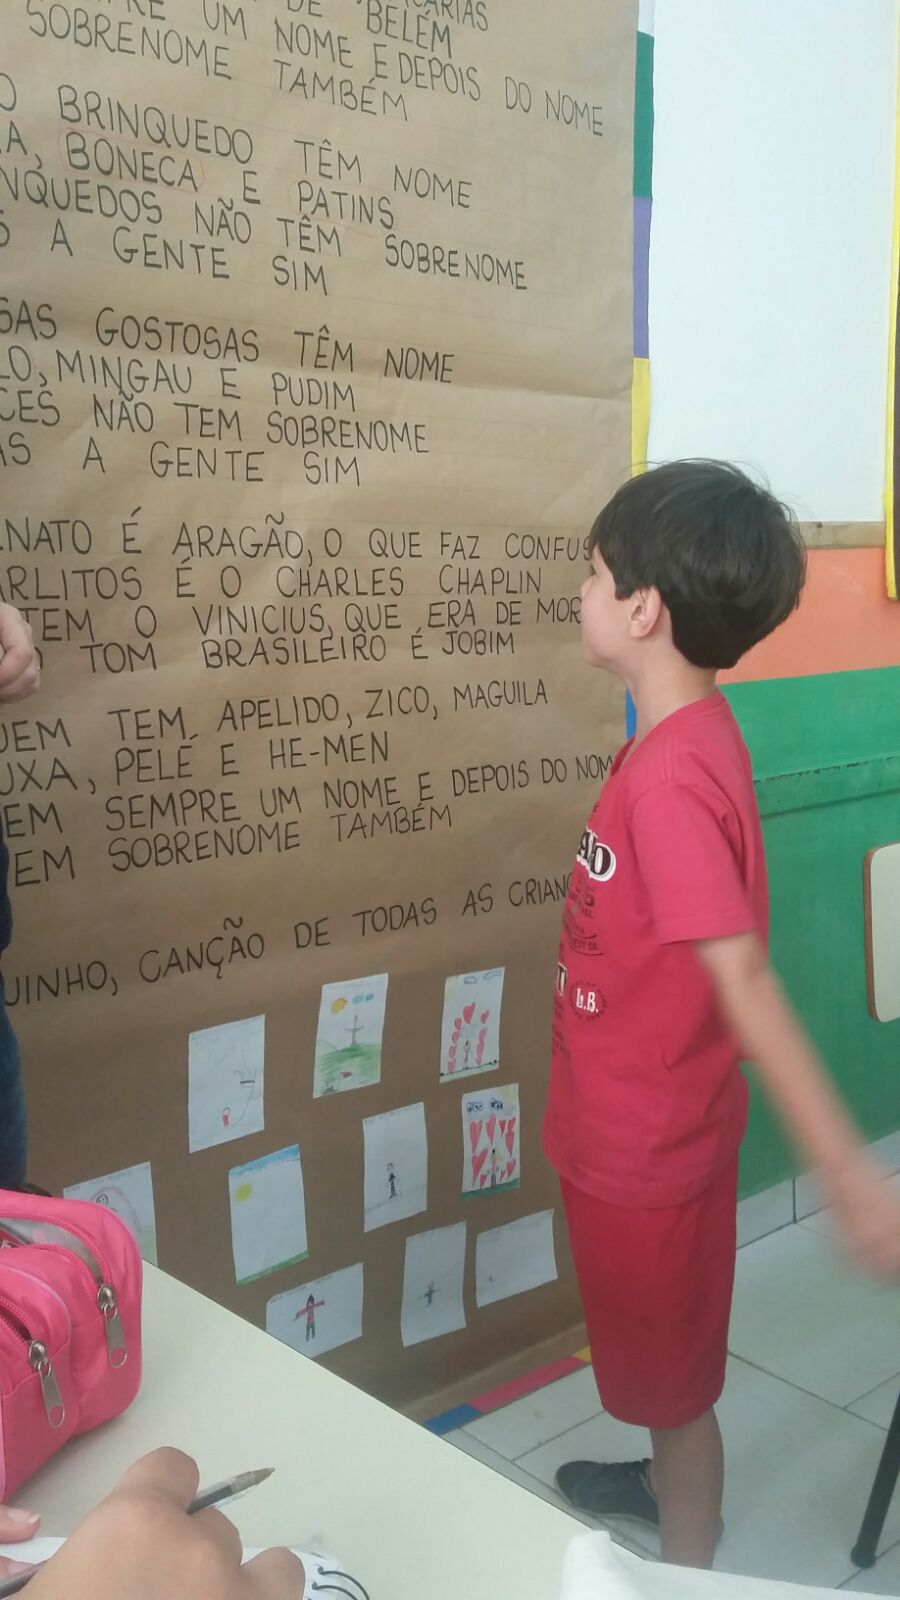 DE BELÉM
UM NOME E DEPOIS DO NOME
SOBRENOME TAMBÉM
O BRINQUEDO TÊM NOME
A, BONECA E PATINS
NQUEDOS NÃO TÊM SOBRENOME
S A GENTE SIM
SAS GOSTOSAS TÊM NOME
LO, MINGAU E PUDIM
CES NÃO TEM SOBRENOME
AS A GENTE SIM
NATO É ARAGÃO, O QUE FAZ CONFUS
ARLITOS É O CHARLES CHAPLIN
TEM O VINICIUS, QUE ERA DE MOR
O TOM BRASILEIRO É JOBIM
UEM TEM APELIDO, ZICO, MAGUILA
UXA, PELÉ E HE-MEN
EM SEMPRE UM NOME E DEPOIS DO NOM
EM SOBRENOME TAMBÉM
UINHO, CANÇÃO DE TODAS AS CRIANÇ
L.B.